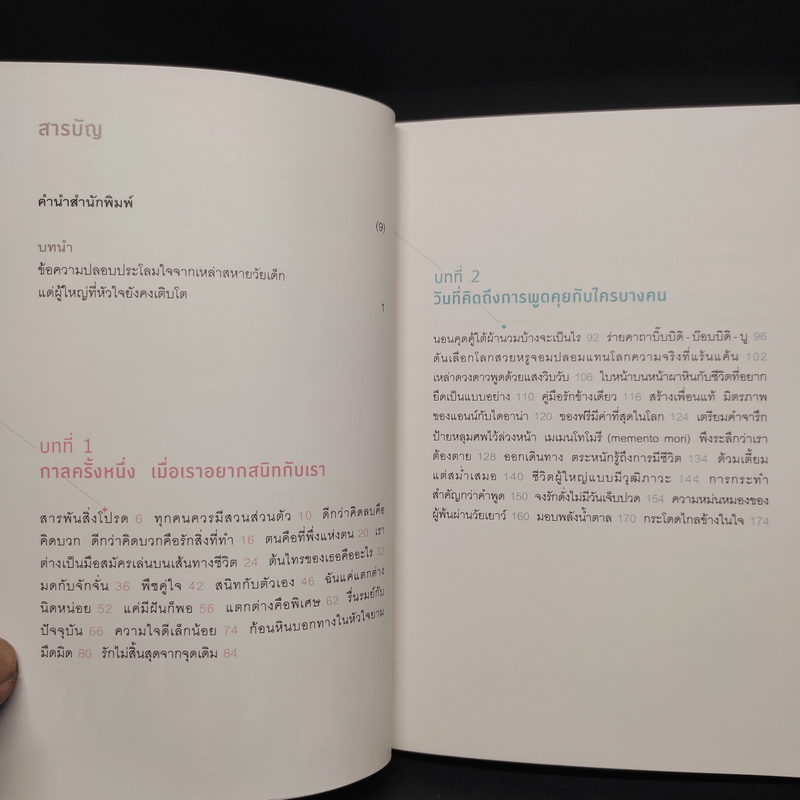 สารบัญ
คำนำสำนักพิมพ์
(9)
บทนำ
ข้อความปลอบประโลมใจจากเหล่าสหายวัยเด็ก
แด่ผู้ใหญ่ที่หัวใจยังคงเติบโต
1
บทที่ 1
กาลครั้งหนึ่ง เมื่อเราอยากสนิทกับเรา
สารพันสิ่งโปรด 6 ทุกคนควรมีสวนส่วนตัว 10 ดีกว่าคิดลบคือ
คิดบวก ดีกว่าคิดบวกคือรักสิ่งที่ทำ 16 ตนคือที่พึ่งแห่งตน 20 เรา
ต่างเป็นมือสมัครเล่นบนเส้นทางชีวิต 24 ต้นไทรของเธอคืออะไร 32
มดกับจักจั่น 36 พืชคู่ใจ 42 สนิทกับตัวเอง 46 ฉันแค่แตกต่าง
นิดหน่อย 52 แค่มีฝันก็พอ 56 แตกต่างคือพิเศษ 62 รื่นรมย์กับ
ปัจจุบัน 66 ความใจดีเล็กน้อย 74 ก้อนหินบอกทางในหัวใจยาม
มืดมิด 80 รักไม่สิ้นสุดจากจุดเดิม 84
บทที่ 2
วันที่คิดถึงการพูดคุยกับใครบางคน
นอนคุดคู้ใต้ผ้านวมบ้างจะเป็นไร 92 ร่ายคาถาบิ๊บบิดิ-บ๊อบบิดิ-บู 96
ดันเลือกโลกสวยหรูจอมปลอมแทนโลกความจริงที่แร้นแค้น 102
เหล่าดวงดาวพูดด้วยแสงวิบวับ 106 ใบหน้าบนหน้าผาหินกับชีวิตที่อยาก
ยึดเป็นแบบอย่าง 110 คู่มือรักข้างเดียว 116 สร้างเพื่อนแท้ มิตรภาพ
ของแอนน์กับไดอาน่า 120 ของฟรีมีค่าที่สุดในโลก 124 เตรียมคำจารึก
ป้ายหลุมศพไว้ล่วงหน้า เมเมนโทโมรี (memento mori) พึงระลึกว่าเรา
ต้องตาย 128 ออกเดินทาง ตระหนักรู้ถึงการมีชีวิต 134 ต้วมเตี้ยม
แต่สม่ำเสมอ 140 ชีวิตผู้ใหญ่แบบมีวุฒิภาวะ 144 การกระทำ
สำคัญกว่าคำพูด 150 จงรักดั่งไม่มีวันเจ็บปวด 154 ความหม่นหมองของ
ผู้พ้นผ่านวัยเยาว์ 160 มอบพลังน้ำตาล 170 กระโดดไกลข้างในใจ 174